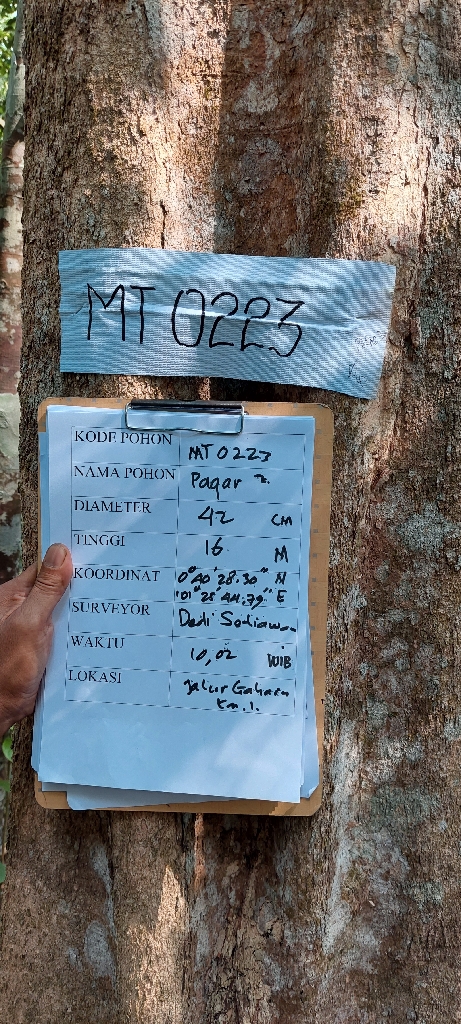 MT 0223
KODE POHON MT 0223
NAMA POHON Pagar ²
DIAMETER 42 CM
TINGGI 16 M
KOORDINAT 0°40'28.30" N
101°28'44.79" E
SURVEYOR Dedi Setiawan
WAKTU 10,02 WIB
LOKASI Jalur Gaharu
Km.1.